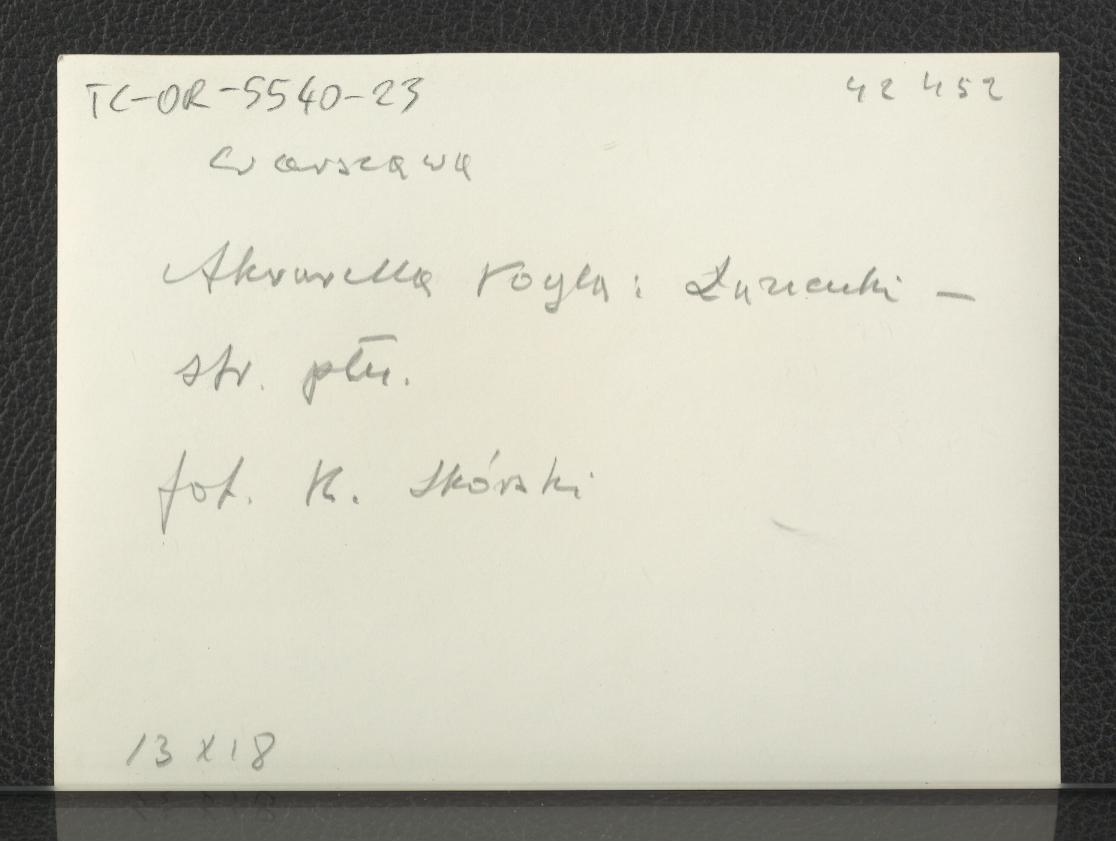 TC-OR-5540-23 42 452
Warszawa
Akwarella Vogla: Łazienki –
str. płn.
fot. K. Skórski
13 x 18